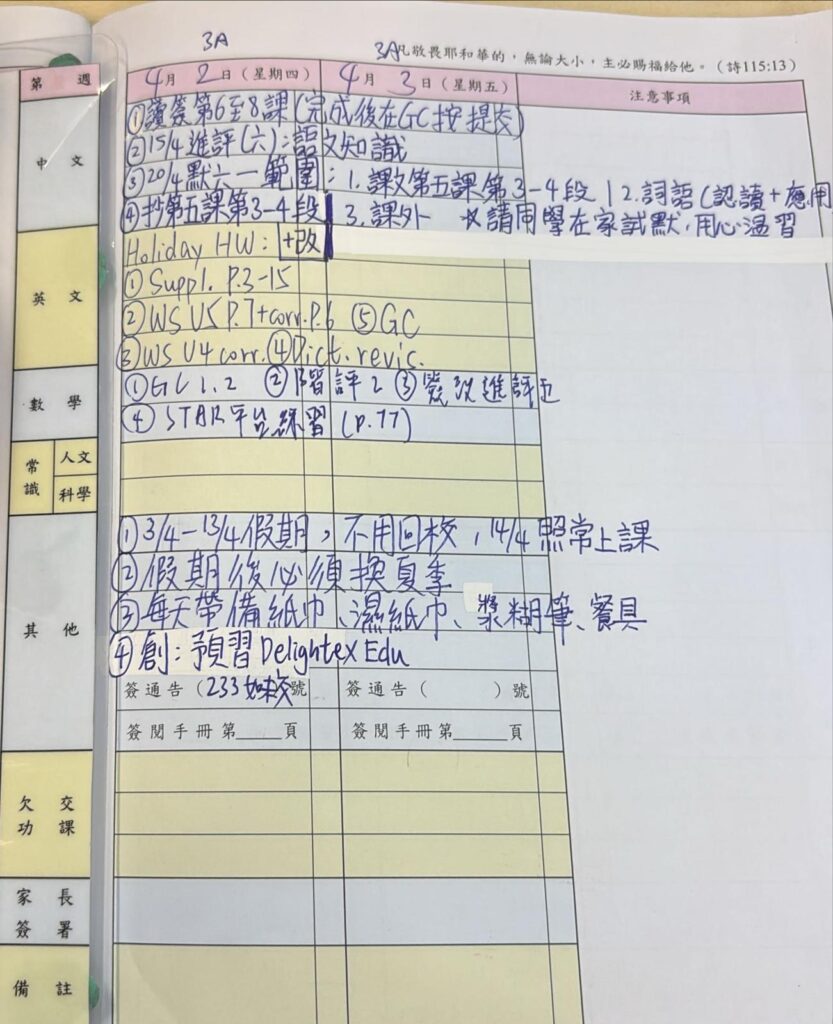 3A
3A 凡敬畏耶和華的，無論大小，主必賜福給他。（詩115:13）
第 週
4月2日（星期四） 4月3日（星期五） 注意事項
中文
①讀簽第6至8課(完成後在GC按提交)
②15/4進評(六):語文知識
③20/4默六一範圍:1.課文第五課第3-4段 | 2.詞語(認讀+應用
④抄第五課第3-4段 3.課外 ☆請同學在家試默,用心溫習
英文
Holiday HW: +改
①Suppl. P.3-15
②WS U5 P.7+corr.P.6 ⑤GC
③WS U4 corr. ④Dict. revis.
數學
①GC 1.2 ②階評2 ③簽改進評五
④STAR平台練習(p.77)
常識 人文
科學
其他
①3/4-13/4假期，不用回校，14/4照常上課
②假期後必須換夏季
③每天帶備紙巾、濕紙巾、漿糊筆、餐具
④創:預習Delightex Edu
簽通告（233 號 簽通告（ ）號
簽閱手冊第 頁 簽閱手冊第 頁
欠交
功課
家長
簽署
備註